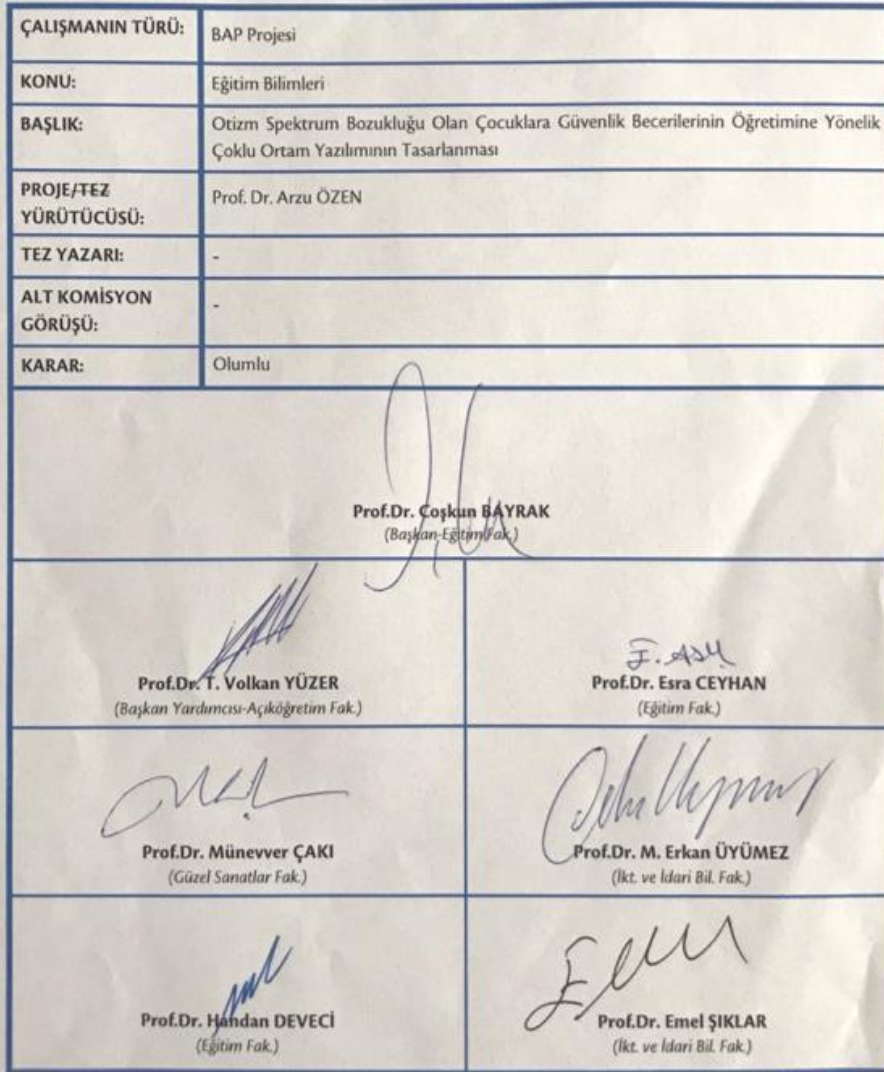 ÇALIŞMANIN TÜRÜ: BAP Projesi
KONU: Eğitim Bilimleri
BAŞLIK: Otizm Spektrum Bozukluğu Olan Çocuklara Güvenlik Becerilerinin Öğretimine Yönelik
Çoklu Ortam Yazılımının Tasarlanması
PROJE/TEZ
YÜRÜTÜCÜSÜ: Prof. Dr. Arzu ÖZEN
TEZ YAZARI: -
ALT KOMİSYON
GÖRÜŞÜ: -
KARAR: Olumlu
Prof.Dr. Coşkun BAYRAK
(Başkan-Eğitim Fak.)
Prof.Dr. T. Volkan YÜZER
(Başkan Yardımcısı-Açıköğretim Fak.)
Prof.Dr. Esra CEYHAN
(Eğitim Fak.)
Prof.Dr. Münevver ÇAKI
(Güzel Sanatlar Fak.)
Prof.Dr. M. Erkan ÜYÜMEZ
(İkt. ve İdari Bil. Fak.)
Prof.Dr. Handan DEVECİ
(Eğitim Fak.)
Prof.Dr. Emel ŞIKLAR
(İkt. ve İdari Bil. Fak.)